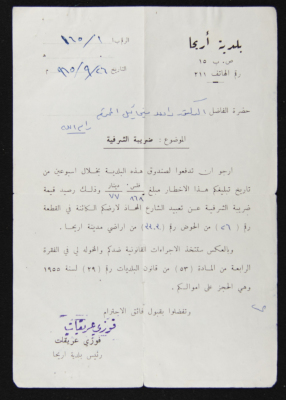 بلدية أريحا
ص . ب ١٥
رقم الهاتف ٢١١
الرقم : ١٦٥/١
تاريخ ٩٦٥/٩/٢٦
حضرة الفاضل
رام الله
الموضوع : ضريبة الشرفية
ارجو ان تدفعوا لصندوق هذه البلدية بخلال اسبوعين من
تاريخ تبليغكم هذا الاخطار مبلغ فلس دينار ٧٧ وذلك رصيد قيمة
ضريبة الشرفية عن تعبيد الشارع المحاذ لارضكم الكائنة في القطعة
رقم (٥٦) من الحوض رقم من اراضي مدينة اريحا .
وبالعكس ستتخذ الاجراءات القانونية ضدكم والمخوله لي في الفقرة
الرابعة من المادة (٥٣) من قانون البلديات رقم (٢٩) لسنة ١٩٥٥
وهي الحجز على اموالكم .
وتفضلوا بقبول فائق الاحترام
فوزي عريقات
فوزي عريقات
رئيس بلدية اريحا